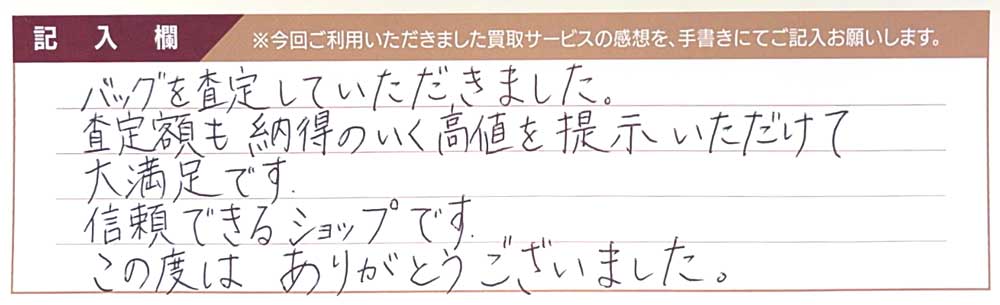 記入欄 ※今回ご利用いただきました買取サービスの感想を、手書きにてご記入お願いします。
バッグを査定していただきました。
査定額も納得のいく高値を提示いただけて
大満足です.
信頼できるショップです.
この度は ありがとうございました。